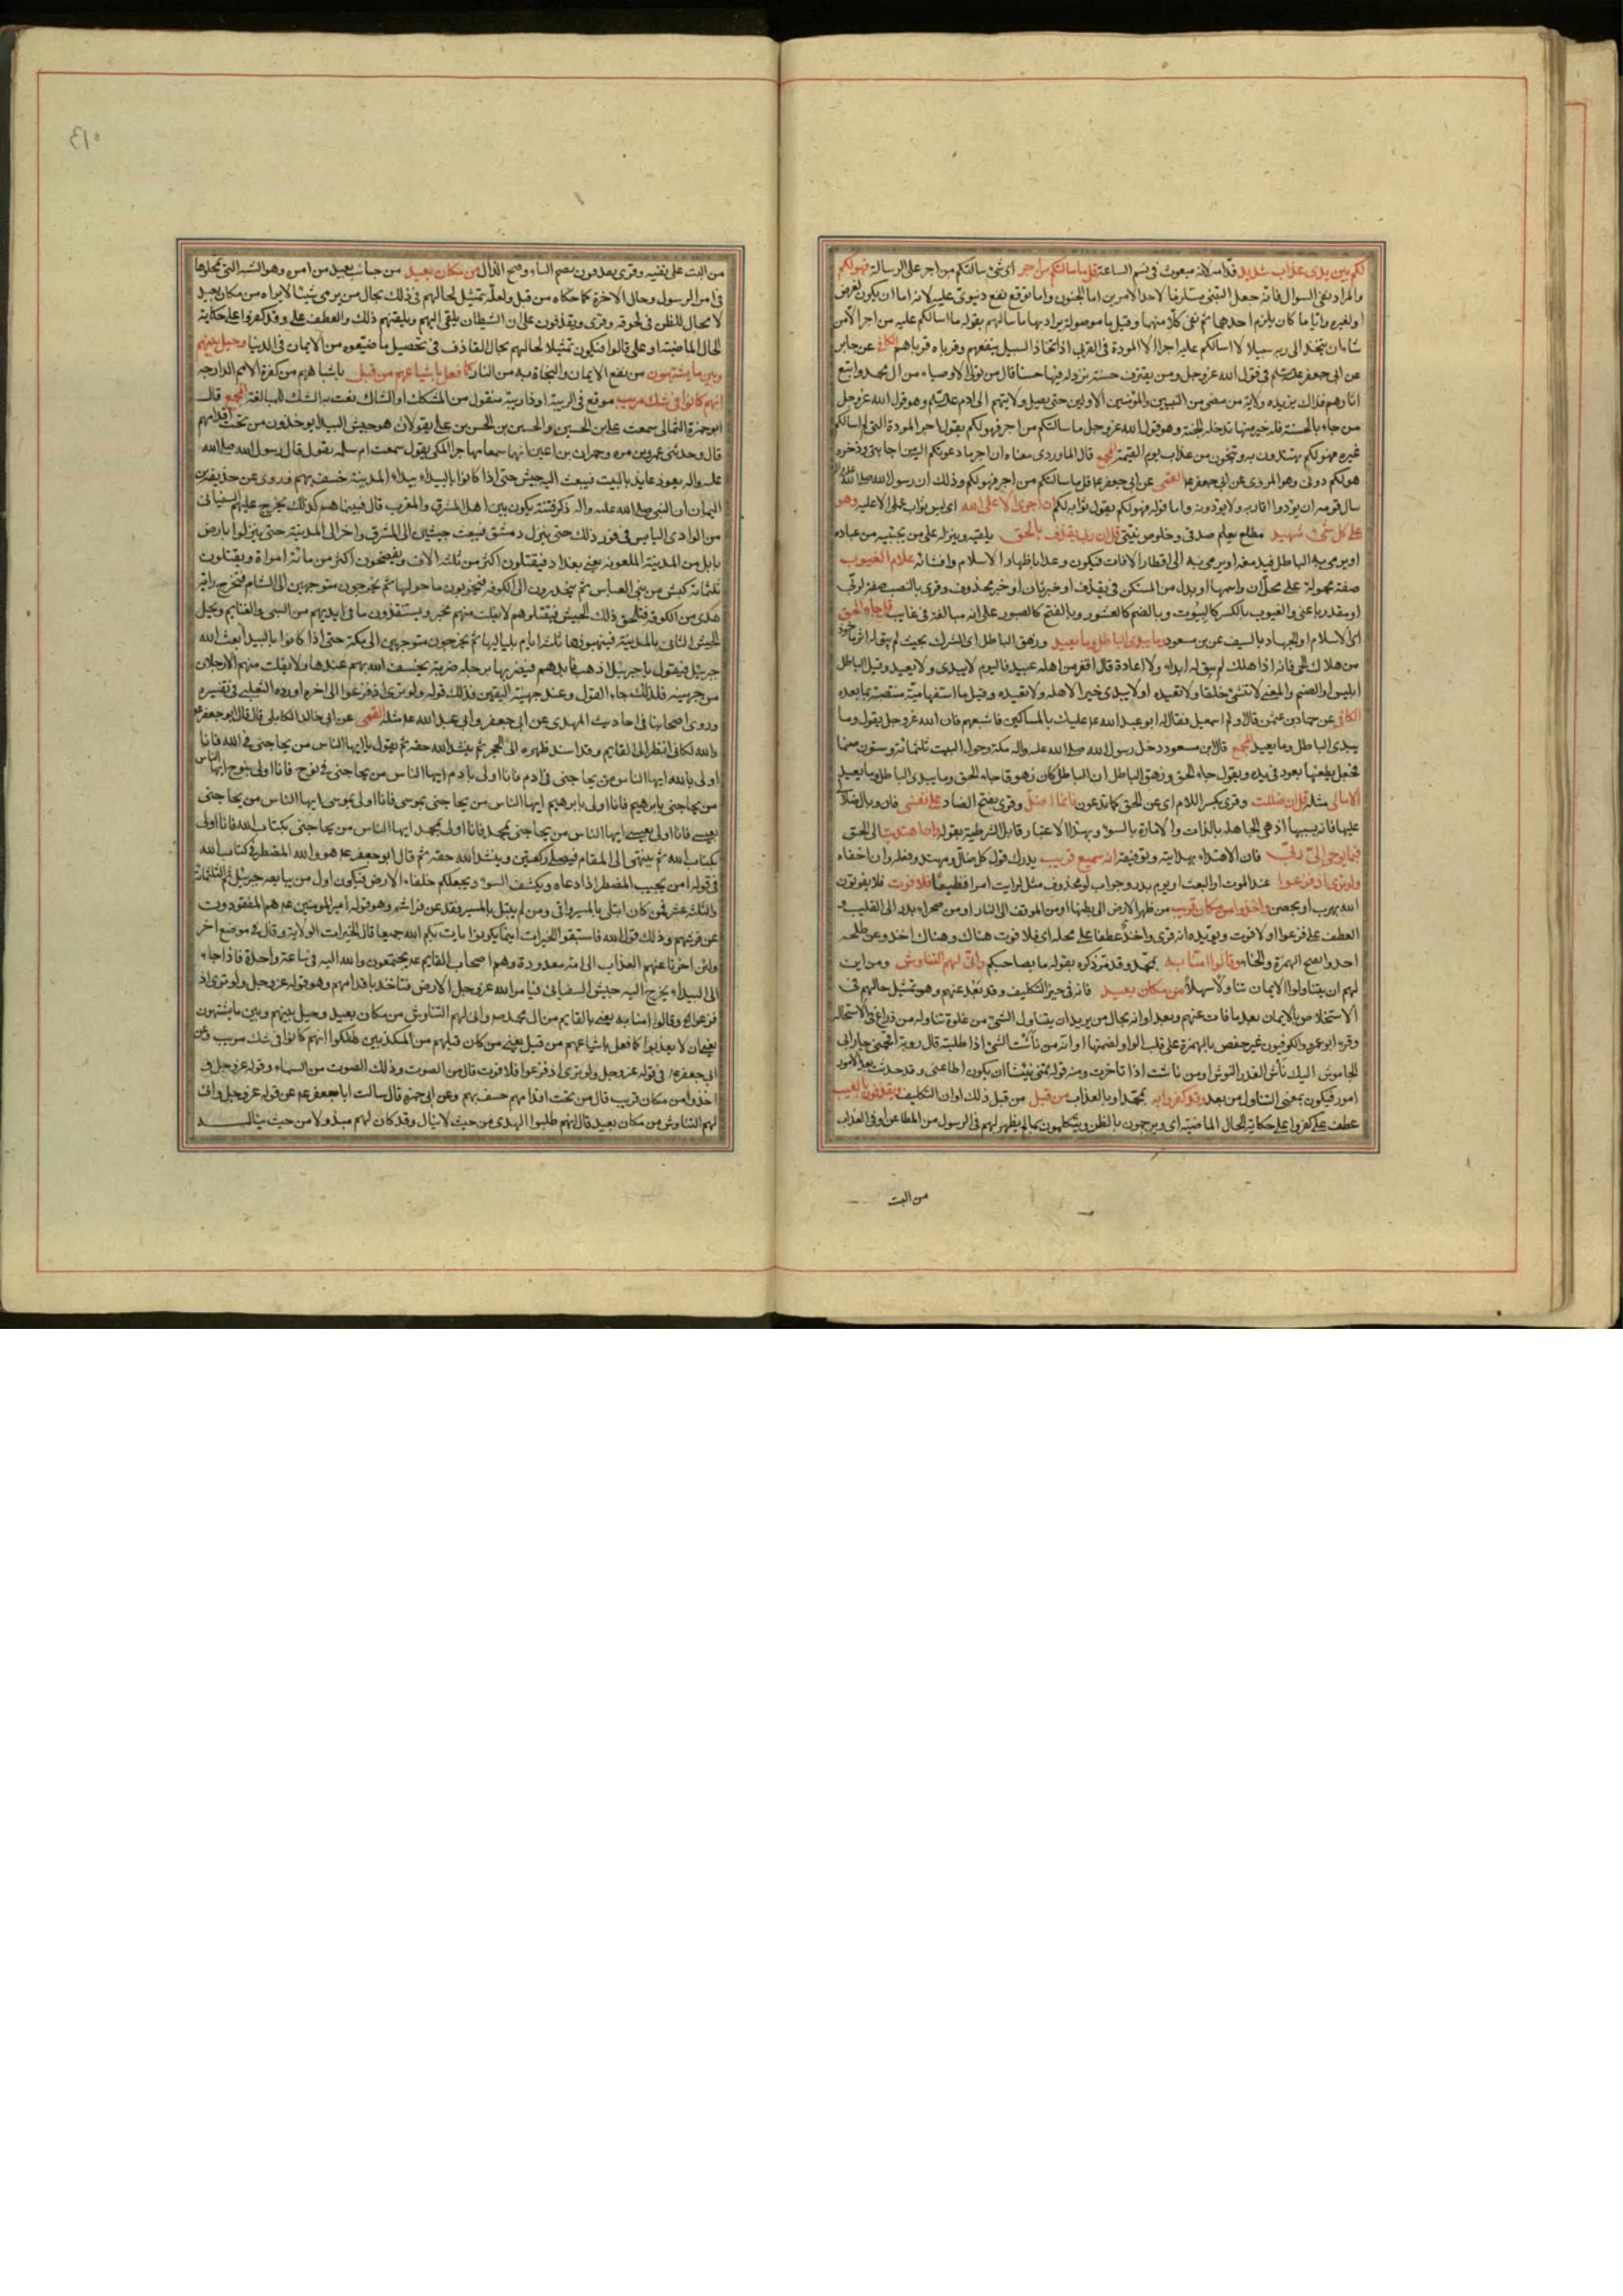 لكم بين يدى عذاب شديد قدامه لانه مبعوث فى نسم الساعة قل ما سالتكم من اجر اى شئ سالتكم من اجر على الرسالة فهو لكم
والمراد نفى السؤال فانه جعل التبنى مستلزما لاحد الامرين اما الجنون واما توقع نفع دنيوى عليه لانه اما ان يكون لغرض
او لغيره وايا ما كان يلزم احدهما ثم نفى كلا منهما وقيل ما موصولة يراد بها ما سالهم بقوله ما اسالكم عليه من اجر الا من
شاء ان يتخذ الى ربه سبيلا لا اسالكم عليه اجرا الا المودة فى القربى اذ اتخاذ السبيل ينفعهم وقرباه قرباهم الكافى عن جابر
عن ابى جعفر فى قول الله عز وجل ومن يقترف حسنة نزد له فيها حسنا قال من تولى الاوصياء من ال محمد واتبع
اثارهم فذاك يزيده ولاية من مضى من النبيين والمؤمنين الاولين حتى يصل ولايتهم الى ادم وهو قول الله عز وجل
من جاء بالحسنة فله خير منها تدخله الجنة وهو قول الله عز وجل ما سالتكم من اجر فهو لكم يقول اجر المودة التى لم اسالكم
غيره فهو لكم تهتدون به وتنجون من عذاب يوم القيمة المجمع قال الماوردى معناه ان اجر ما دعوتكم اليه من اجابتى وذخره
هو لكم دونى وهو المروى عن ابى جعفر القمى عن ابى جعفر قل ما سالتكم من اجر فهو لكم وذلك ان رسول الله صلى الله عليه واله
سال قومه ان يودوا اقاربه ولا يوذونه واما قوله فهو لكم يقول ثوابه لكم ان اجرى الا على الله اى ليس ثواب عملى الا عليه وهو
على كل شئ شهيد مطلع يعلم صدقى وخلوص نيتى قل ان ربى يقذف بالحق يلقيه وينزله على من يجتبيه من عباده
او يرمى به الباطل فيدمغه او يرمى به الى اقطار الافاق فيكون وعدا باظهار الاسلام وافشائه علام الغيوب
صفة محمولة على محل ان واسمها او بدل من المستكن فى يقذف او خبر ثان او خبر محذوف وقرئ بالنصب صفة لربى
او مقدر باعنى والغيوب بالكسر كالبيوت وبالضم كالعشور وبالفتح كالصبور على انه مبالغة فى غايب قل جاء الحق
اى الاسلام او الجهاد بالسيف عن بن مسعود وما يبدئ الباطل وما يعيد وزهق الباطل اى الشرك بحيث لم يبق له اثر ماخوذ
من هلاك الحى فانه اذا هلك لم يبق له ابداء ولا اعادة قال اقفر من اهله عبيد فاليوم لا يبدى ولا يعيد وقيل الباطل
ابليس او الصنم والمعنى لا تنشئ خلقا ولا تعيده او لا يبدى خيرا لاهله ولا تعيده وقيل ما استفهامية منتصبة بما بعده
الكافى عن حماد بن عثمن قال اولم اسمعيل فقال له ابو عبد الله ع عليك بالمساكين فاشبعهم فان الله عز وجل يقول وما
يبدئ الباطل وما يعيد المجمع قال ابن مسعود دخل رسول الله صلى الله عليه واله مكة وحول البيت ثلثمائة وستون صنما
فجعل يطعنها بعود فى يده ويقول جاء الحق وزهق الباطل ان الباطل كان زهوقا جاء الحق وما يبدئ الباطل وما يعيد
الامالى مثله قل ان ضللت وقرئ بكسر اللام اى عن الحق كما تدعون فانما اضل وقرئ بفتح الضاد على نفسى فان وبال ضلالى
عليها فانه بسببها اذ هى الجاهلة بالذات والامارة بالسوء وبهذا الاعتبار قابل الشرطية بقوله وان اهتديت الى الحق
فبما يوحى الى ربى فان الاهتداء بهدايته وتوفيقه انه سميع قريب يدرك قول كل ضال ومهتد وفعله وان اخفاه
ولو ترى اذ فزعوا عند الموت او البعث او يوم بدر وجواب لو محذوف مثل لرايت امرا فظيعا فلا فوت فلا يفوتون
الله بهرب او تحصن واخذوا من مكان قريب من ظهر الارض الى بطنها او من الموقف الى النار او من صحراء بدر الى القليب و
العطف على فزعوا او لا فوت ويؤيده انه قرئ واخذ عطفا على محله اى فلا فوت هناك وهناك اخذ وعن طلحه
وقالوا امنا به بمحمد وقد مر ذكره بقوله ما بصاحبكم وانى لهم التناوش ومن اين
لهم ان يتناولوا الايمان تناولا سهلا من مكان بعيد فانه فى حيز التكليف وقد بعد عنهم وهو تمثيل حالهم فى
الاستخلاص بالايمان بعد ما فات عنهم وبعد اوانه بحال من يريد ان يتناول الشئ من غلوة تناوله من ذراع فى الاستحالة
وقرء ابو عمرو والكوفيون غير حفص بالهمزة على قلب الواو لضمتها او انه من نأشت الشئ اذا طلبته قال رؤبة اقحمنى جار ابى
الجاموش اليك نأش القدر النؤش او من ناشت اذا تاخرت ومنه قوله تمنى نئيشا ان يكون اطاعنى وقد حدثت بعد الامور
امور فيكون بمعنى التناول من بعد وقد كفروا به بمحمد او بالعذاب من قبل من قبل ذلك اوان التكليف ويقذفون بالغيب
عطف على كفروا على حكاية الحال الماضية اى ويرجمون بالظن ويتكلمون بما لم يظهر لهم فى الرسول من المطاعن او فى العذاب
من البت
٤١٠
من البت على نفيه وقرئ يقذفون من مكان بعيد من جانب بعيد من امره وهو الشبه التى تمحلوها
فى امر الرسول وحال الاخرة كما حكاه من قبل ولعله تمثيل لحالهم فى ذلك بحال من يرمى شيئا لا يراه من مكان بعيد
لا مجال للظن فى لحوقه وقرئ ويقذفون على ان الشيطان يلقى اليهم ويلقنهم ذلك والعطف على وقد كفروا على حكاية
الحال الماضية او على قالوا فيكون تمثيلا لحالهم بحال القاذف فى تحصيل ما ضيعوه من الايمان فى الدنيا وحيل بينهم
وبين ما يشتهون من نفع الايمان والنجاة به من النار كما فعل باشياعهم من قبل باشباههم من كفرة الامم الدارجة
انهم كانوا فى شك مريب موقع فى الريبة او ذا ريبة منقول من المشكك او الشاك نعت به الشك للمبالغة المجمع قال
ابو حمزة الثمالى سمعت على بن الحسين والحسن بن الحسن بن على يقولان هو جيش البيداء يوخذون من تحت اقدامهم
قال وحدثنى عمرو بن مره وحمران بن اعين انهما سمعا مهاجرا المكى يقول سمعت ام سلمه يقول قال رسول الله صلى الله
عليه واله يعوذ عايذ بالبيت فيبعث اليه جيش حتى اذا كانوا بالبيداء بيداء المدينة خسف بهم وروى عن حذيفة بن
اليمان ان النبى صلى الله عليه واله ذكر فتنة يكون بين اهل المشرق والمغرب قال فبينا هم كذلك يخرج عليهم السفيانى
من الوادى اليابس فى فور ذلك حتى ينزل دمشق فيبعث جيشين الى المشرق واخر الى المدينة حتى ينزلوا بارض
بابل من المدينة الملعونة يعنى بغداد فيقتلون اكثر من ثلثة الاف ويفضحون اكثر من مائة امراة ويقتلون
ثلثمائة كبش من بنى العباس ثم ينحدرون الى الكوفه فيخربون ما حولها ثم يخرجون متوجهين الى الشام فيخرج راية
هدى من الكوفه فتلحق ذلك الجيش فيقتلوهم لا يفلت منهم مخبر ويستنقذون ما فى ايديهم من السبى والغنايم ويحل
الجيش الثانى بالمدينة فينهبونها ثلثة ايام بلياليها ثم يخرجون متوجهين الى مكة حتى اذا كانوا بالبيداء بعث الله
جبرئيل فيقول يا جبرئيل اذهب فابدهم فيضربها برجله ضربة يخسف الله بهم عندها ولا يفلت منهم الا رجلان
من جهينه فلذلك جاء القول وعند جهينة اليقين فذلك قوله ولو ترى اذ فزعوا الى اخره اورده الثعلبى فى تفسيره
وروى اصحابنا فى احاديث المهدى عن ابى جعفر وابى عبد الله ع مثله القمى عن ابى خالد الكابلى قال قال ابو جعفر ع
والله لكانى انظر الى القايم وقد اسند ظهره الى الحجر ثم ينشد الله حقه ثم يقول يا ايها الناس من يحاجنى فى الله فانا
اولى بالله ايها الناس من يحاجنى فى ادم فانا اولى بادم ايها الناس من يحاجنى فى نوح فانا اولى بنوح ايها الناس
من يحاجنى بابرهيم فانا اولى بابرهيم ايها الناس من يحاجنى بموسى فانا اولى بموسى ايها الناس من يحاجنى
بعيسى فانا اولى بعيسى ايها الناس من يحاجنى بمحمد فانا اولى بمحمد ايها الناس من يحاجنى بكتاب الله فانا اولى
بكتاب الله ثم ينتهى الى المقام فيصلى ركعتين وينشد الله حقه ثم قال ابو جعفر ع هو والله المضطر فى كتاب الله
فى قوله امن يجيب المضطر اذا دعاه ويكشف السوء ويجعلكم خلفاء الارض فيكون اول من يبايعه جبرئيل ثم الثلثمائة
والثلثة عشر فمن كان ابتلى بالمسير وافى ومن لم يبتل بالمسير فقد عن فراشه وهو قوله امير المومنين ع هم المفقودون
عن فرشهم وذلك قول الله فاستبقوا الخيرات اينما يكونوا يات بكم الله جميعا قال الخيرات الولاية وقال فى موضع اخر
ولئن اخرنا عنهم العذاب الى امة معدودة وهم اصحاب القايم ع يجتمعون والله اليه فى ساعة واحدة فاذا جاء
الى البيداء يخرج اليه جيش السفيانى فيامر الله عز وجل الارض فتاخذ باقدامهم وهو قوله عز وجل ولو ترى اذ
فزعوا وقالوا امنا به يعنى بالقايم من ال محمد ص وانى لهم التناوش من مكان بعيد وحيل بينهم وبين ما يشتهون
يعنى ان لا يعذبوا كما فعل باشياعهم من قبل يعنى من كان قبلهم من المكذبين هلكوا انهم كانوا فى شك مريب وعن
ابى جعفر ع فى قوله عز وجل ولو ترى اذ فزعوا فلا فوت قال من الصوت وذلك الصوت من السماء وقوله عز وجل و
اخذوا من مكان قريب قال من تحت اقدامهم خسف بهم وعن ابى حمزة قال سالت ابا جعفر ع عن قوله عز وجل وانى
لهم التناوش من مكان بعيد قال انهم طلبوا الهدى من حيث لا ينال وقد كان لهم مبذولا من حيث ينال